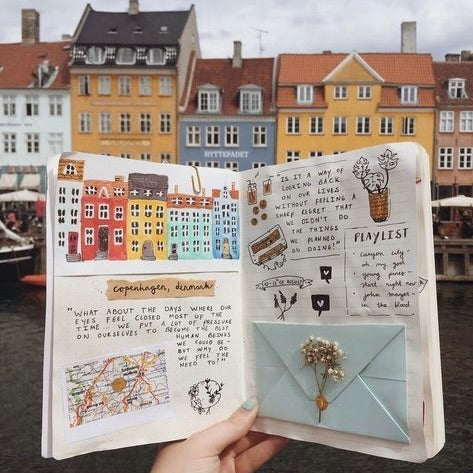 HYTTEFADET
copenhagen, denmark
"WHAT ABOUT THE DAYS WHERE OUR
EYES FEEL CLOSED MOST OF THE
TIME... WE PUT A LOT OF PRESSURE
ON OURSELVES TO BECOME THE BEST
HUMAN BEINGS
WE COULD BE-
BUT WHY DO
WE FEEL THE
NEED TO?"
"IS IT A WAY OF
LOOKING BACK
ON OUR LIVES
WITHOUT FEELING A
SHARP REGRET THAT
WE DIDN'T DO
THE THINGS
WE PLANNED
ON DOING?"
PLAYLIST
canyon city -
oh my god -
young pines -
start right now
john mayer -
in the blood